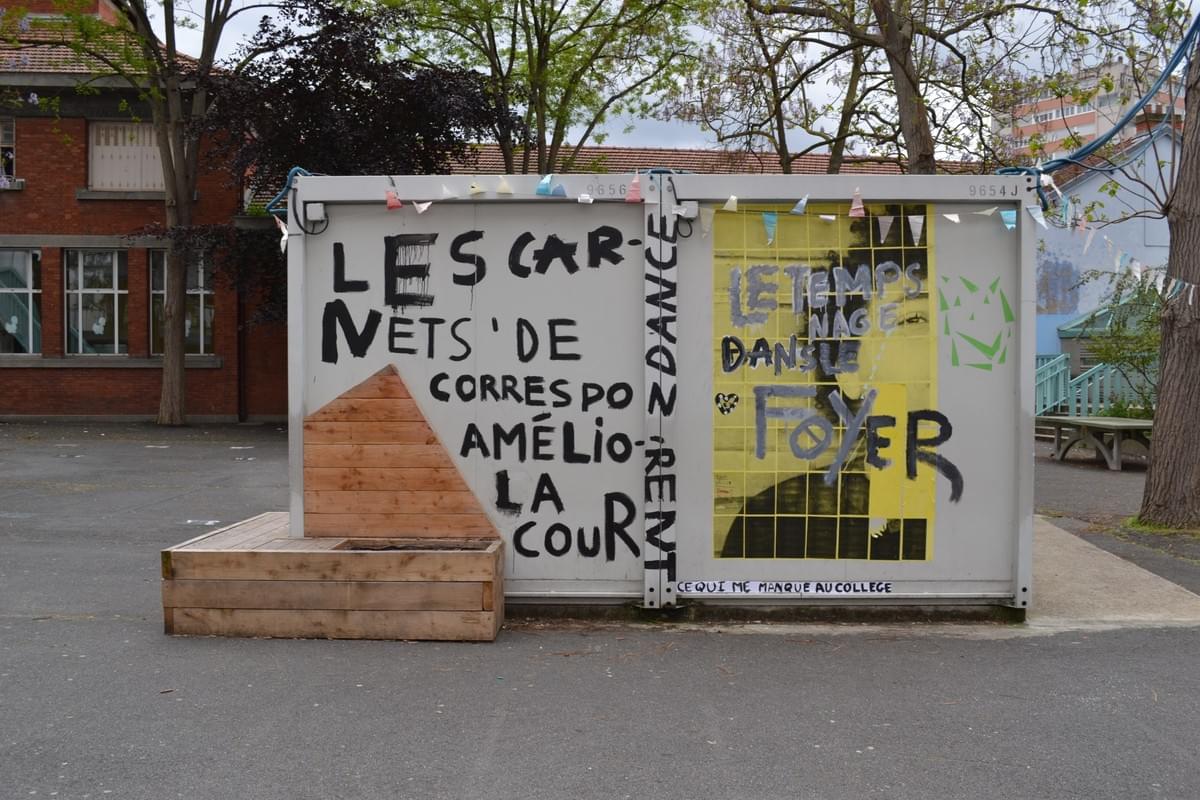 9656
9654J
LES CAR-
NETS'DE
CORRESPO
NDANCE
AMÉLIO-
RENT
LA
COUR
LE TEMPS
NAGE
DANS LE
FOYER
CE QUI ME MANQUE AU COLLEGE